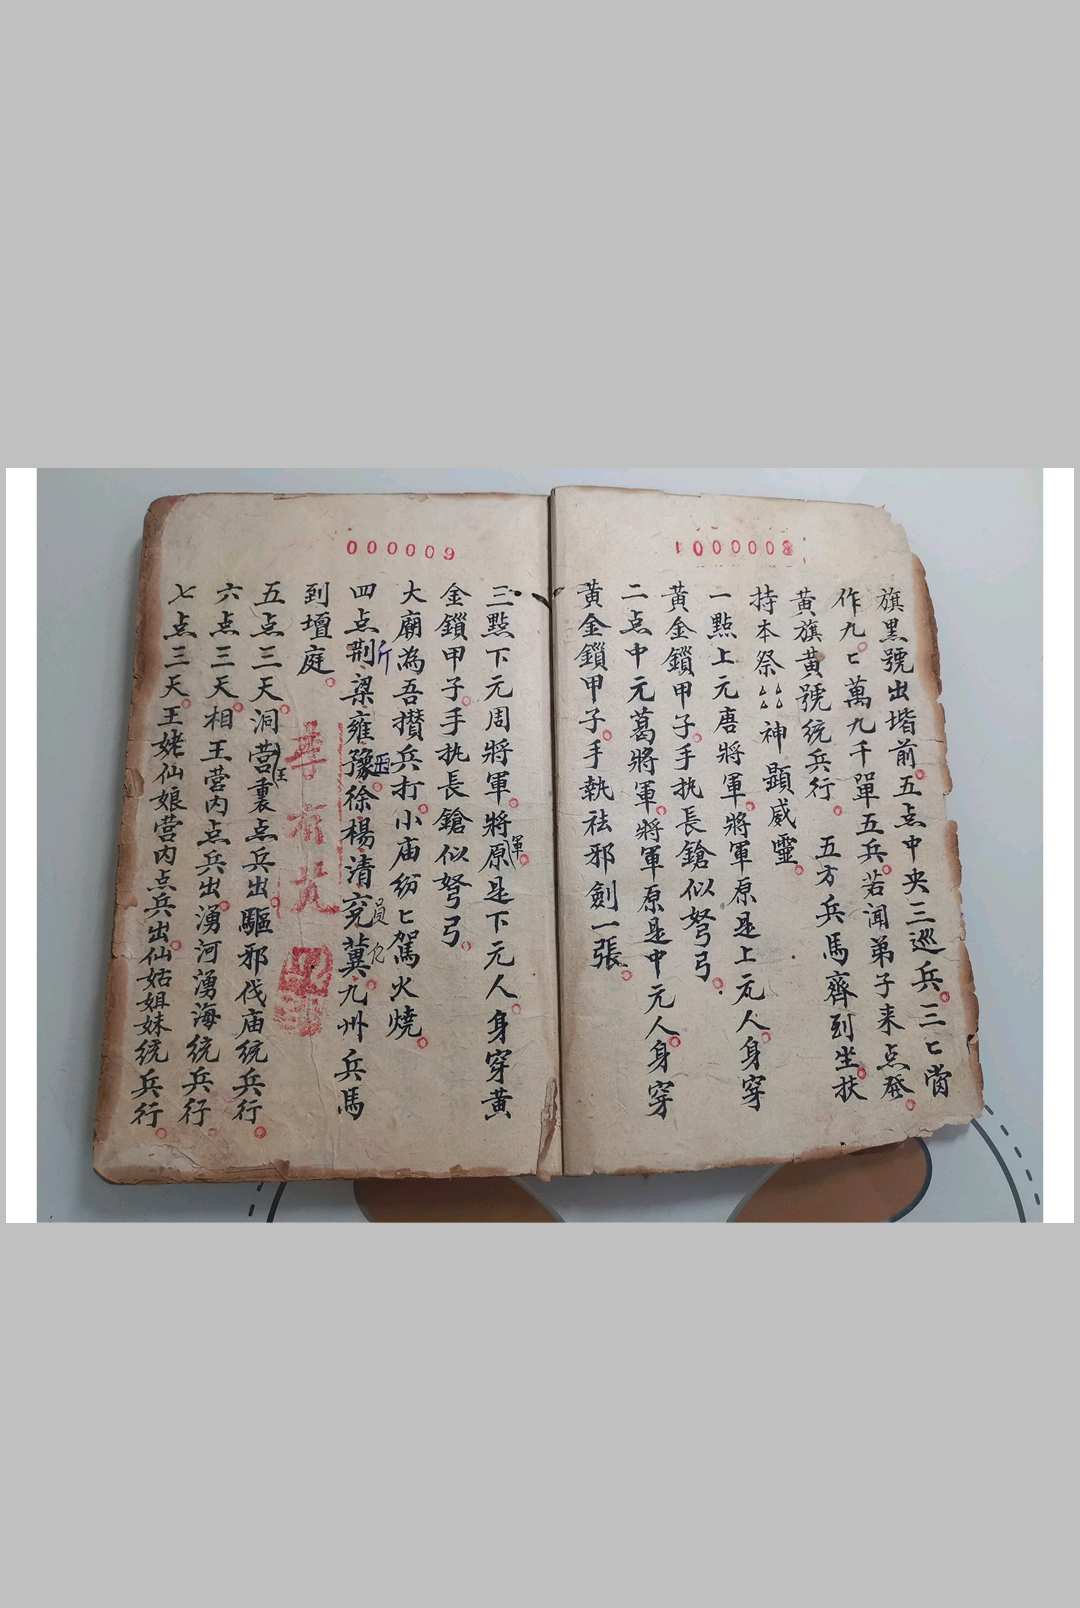 1000008
旗黑號出堦前五点中央三巡兵三匕當
作九匕萬九千單五兵若闻弟子来点發
黃旗黃號統兵行 五方兵馬齊到坐扶
持本祭厸厸神顯威靈
一點上元唐將軍將軍原是上元人身穿
黃金鎖甲子手执長鎗似弩弓
二点中元葛將軍將軍原是中元人身穿
黃金鎖甲子手執祛邪劍一張
000009
三點下元周將軍將軍原是下元人身穿黃
金鎖甲子手执長鎗似弩弓
大廟為吾攅兵打小庙纷匕駕火燒
四点荆梁雍豫徐楊清兖冀九州兵馬
到壇庭
五点三天洞王营裏点兵出驅邪伐庙統兵行
六点三天相王营内点兵出湧河湧海统兵行
七点三天王姥仙娘营内点兵出仙姑姐妹统兵行